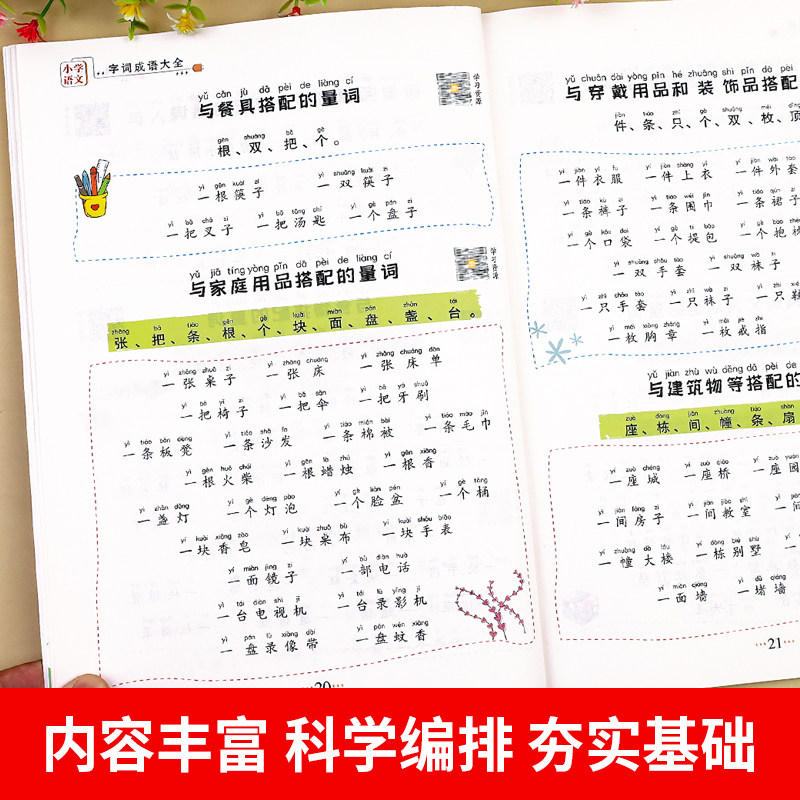 小学语文
字词成语大全
yǔ cān jù dā pèi de liàng cí
与餐具搭配的量词
学习资源
gēn shuāng bǎ gè
根、双、把、个。
yì gēn kuài zi yì shuāng kuài zi
一根筷子 一双筷子
yì bǎ chā zi yì bǎ tāng chí yí gè pán zi
一把叉子 一把汤匙 一个盘子
yǔ jiā tíng yòng pǐn dā pèi de liàng cí
与家庭用品搭配的量词
学习资源
zhāng bǎ tiáo gēn gè kuài miàn pán zhǎn tái
张、把、条、根、个、块、面、盘、盏、台。
yì zhāng zhuō zi yì zhāng chuáng yì zhāng chuáng dān
一张桌子 一张床 一张床单
yì bǎ yǐ zi yì bǎ sǎn yì bǎ yá shuā
一把椅子 一把伞 一把牙刷
yì tiáo bǎn dèng yì tiáo shā fā yì tiáo mián bèi yì tiáo máo jīn
一条板凳 一条沙发 一条棉被 一条毛巾
yì gēn huǒ chái yì gēn là zhú yì gēn xiāng
一根火柴 一根蜡烛 一根香
yì zhǎn dēng yí gè dēng pào yí gè liǎn pén yí gè tǒng
一盏灯 一个灯泡 一个脸盆 一个桶
yí kuài xiāng zào yí kuài zhuō bù yí kuài shǒu biǎo
一块香皂 一块桌布 一块手表
yí miàn jìng zi yí bù diàn huà
一面镜子 一部电话
yì tái diàn shì jī yì tái lù yǐng jī
一台电视机 一台录影机
yì pán lù xiàng dài yì pán wén xiāng
一盘录像带 一盘蚊香
20
yǔ chuān dài yòng pǐn hé zhuāng shì pǐn dā pèi
与穿戴用品和装饰品搭配
jiàn tiáo zhī gè shuāng méi dǐng
件、条、只、个、双、枚、顶
yí jiàn yī fu yí jiàn shàng yī yí jiàn wài tào
一件衣服 一件上衣 一件外套
yì tiáo kù zi yì tiáo wéi jīn yì tiáo qún zi
一条裤子 一条围巾 一条裙子
yí gè kǒu dai yí gè tí bāo yí gè bào
一个口袋 一个提包 一个抱
yì shuāng shǒu tào yì shuāng wà zi
一双手套 一双袜子
yì zhī shǒu tào yì zhī wà zi yì zhī
一只手套 一只袜子 一只
yì méi xiōng zhāng yì méi jiè zhi
一枚胸章 一枚戒指
yǔ jiàn zhù wù děng dā pèi de
与建筑物等搭配的
zuò dòng jiān zhuàng tiáo shàn
座、栋、间、幢、条、扇
yí zuò chéng yí zuò qiáo yí zuò
一座城 一座桥 一座
yì jiān fáng zi yì jiān jiào shì yì jiān
一间房子 一间教室 一间
yí zhuàng dà lóu yí dòng bié shù
一幢大楼 一栋别墅 一
yí miàn qiáng yì dǔ qiáng
一面墙 一堵墙
21
内容丰富 科学编排 夯实基础